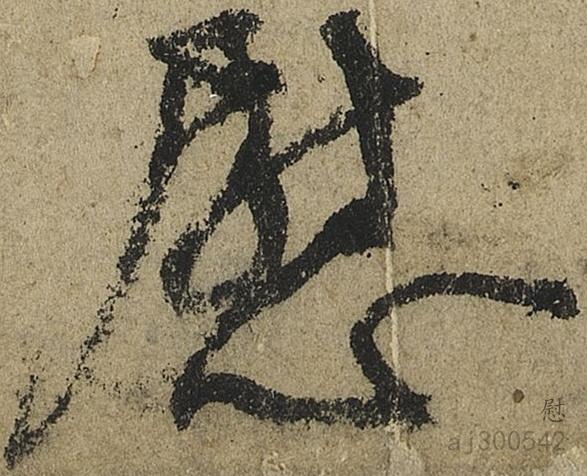 慰
慰
aj300542